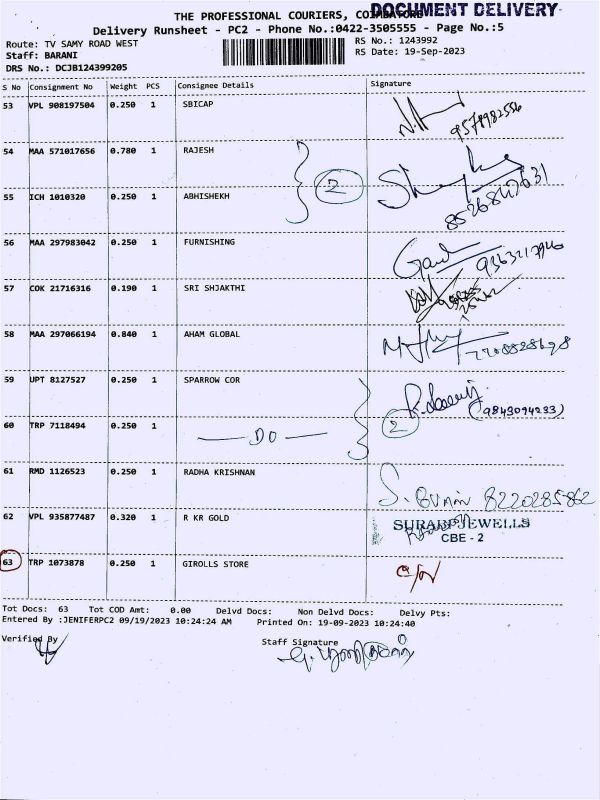 DOCUMENT DELIVERY
THE PROFESSIONAL COURIERS, COIMBATORE
Delivery Runsheet - PC2 - Phone No.:0422-3505555 - Page No.:5
Route: TV SAMY ROAD WEST
RS No.: 1243992
Staff: BARANI
RS Date: 19-Sep-2023
DRS No.: DCJB124399205
S No Consignment No Weight PCS Consignee Details Signature
53 VPL 908197504 0.250 1 SBICAP
9578982556
54 MAA 571017656 0.780 1 RAJESH
2
55 ICH 1010320 0.250 1 ABHISHEKH
8526847631
56 MAA 297983042 0.250 1 FURNISHING
57 COK 21716316 0.190 1 SRI SHJAKTHI
58 MAA 297066194 0.840 1 AHAM GLOBAL
59 UPT 8127527 0.250 1 SPARROW COR
(9843094233)
60 TRP 7118494 0.250 1 — DO — 2
61 RMD 1126523 0.250 1 RADHA KRISHNAN
8220285862
62 VPL 935877487 0.320 1 R KR GOLD
SURABI JEWELLS
CBE - 2
63 TRP 1073878 0.250 1 GIROLLS STORE
Tot Docs: 63 Tot COD Amt: 0.00 Delvd Docs: Non Delvd Docs: Delvy Pts:
Entered By :JENIFERPC2 09/19/2023 10:24:24 AM Printed On: 19-09-2023 10:24:40
Verified By
Staff Signature